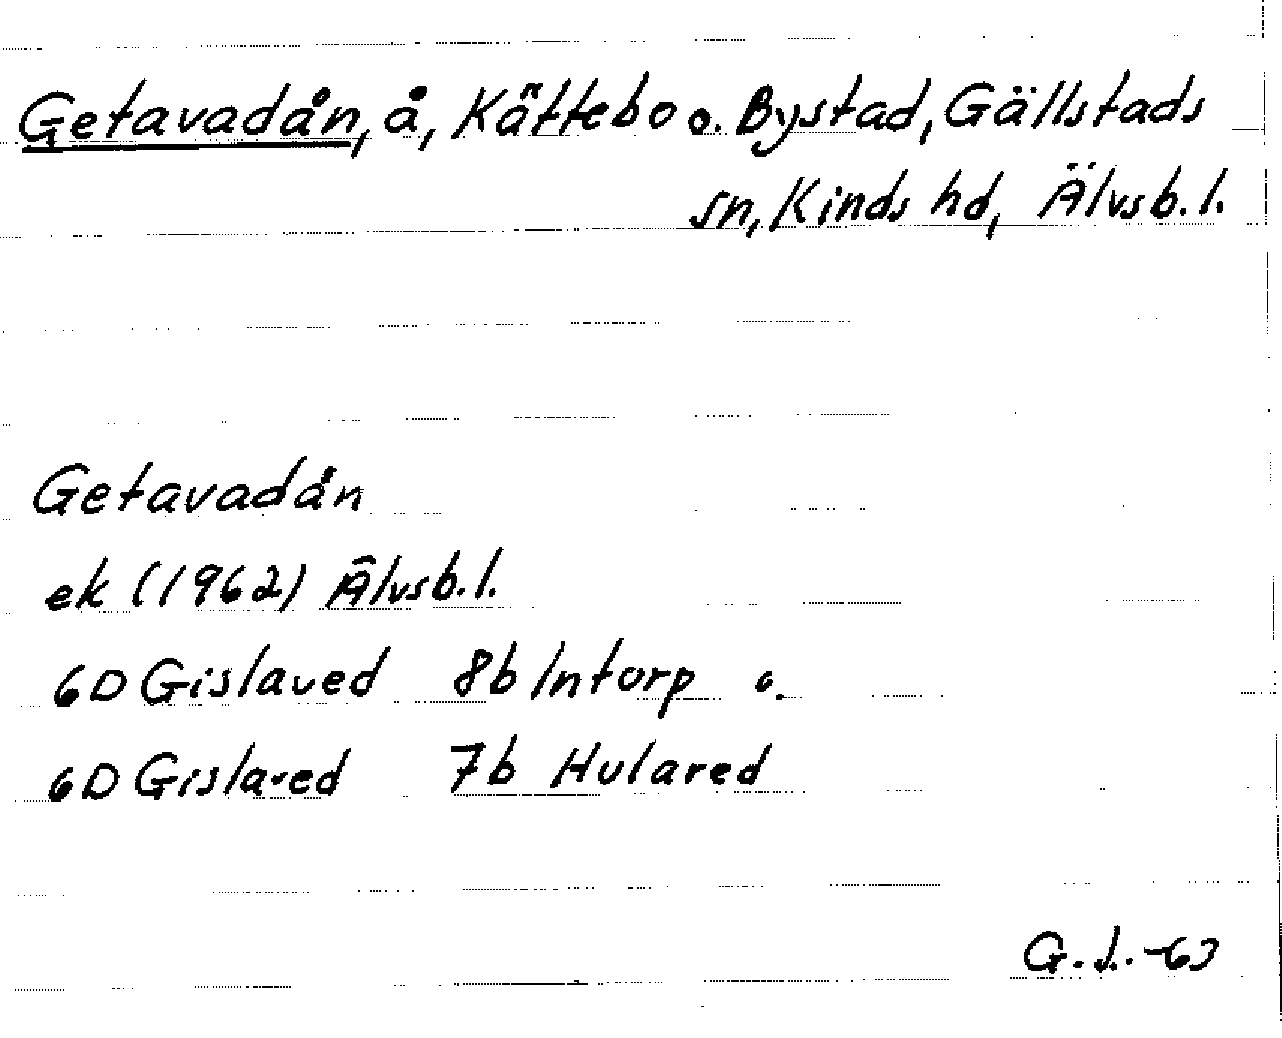 Getavadån, å, Kättebo o. Bystad, Gällstads
sn, Kinds hd, Älvsb. l.
Getavadån
ek (1962) Älvsb. l.
6D Gislaved 8b Intorp o.
6D Gislaved 7b Hulared
G. L. -63